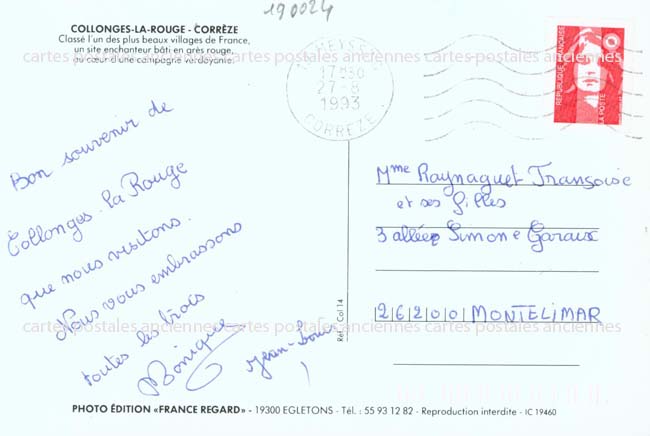 190024
COLLONGES-LA-ROUGE - CORRÈZE
Classé l'un des plus beaux villages de France,
un site enchanteur bâti en grès rouge,
au cœur d'une campagne verdoyante.
MEYSS
17H30
27-8
1993
CORREZE
REPUBLIQUE FRANÇAISE
LA POSTE
Bon souvenir de
Collonges-la Rouge
que nous visitons.
Nous vous embrassons
toutes les trois
Monique
Jean-Louis
Mme Raynaguet Françoise
et ses filles
3 allées Simone Garaux
26200 MONTELIMAR
Réf. Col 14
cartes postales anciennes cartes postales anciennes cartes postales anciennes
cartes postales anciennes cartes postales anciennes cartes postales anciennes
cartes postales anciennes cartes postales anciennes cartes postales anciennes
PHOTO ÉDITION «FRANCE REGARD» - 19300 EGLETONS - Tél. : 55 93 12 82 - Reproduction interdite - IC 19460